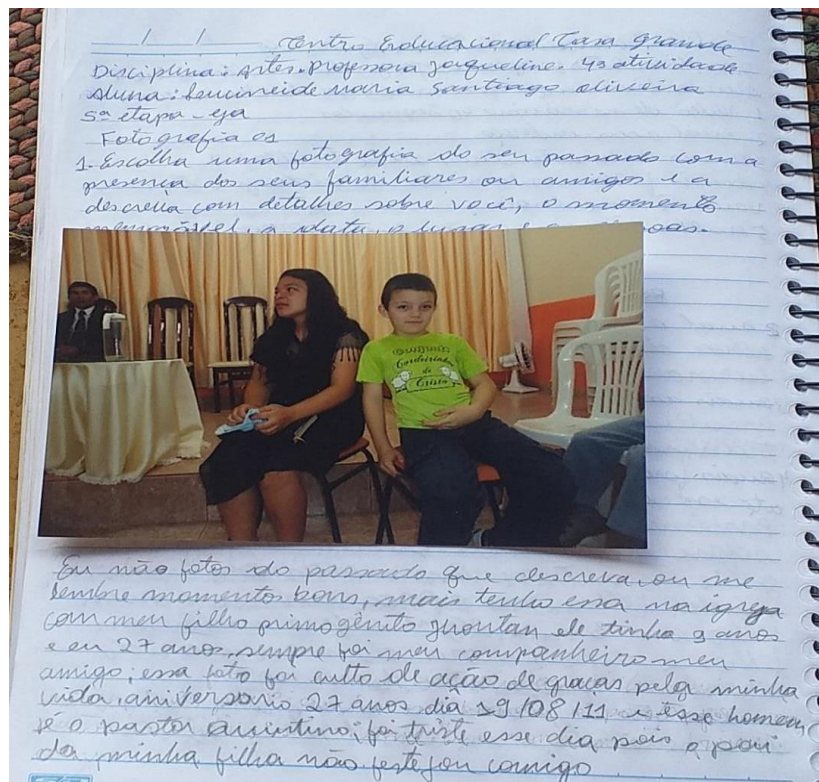 / / Centro Educacional Casa Grande
Disciplina: Artes. professora Jaqueline. 4ª atividade
Aluna: Leucineide Maria Santiago oliveira
5ª etapa - eja
Fotografia 01
1. Escolha uma fotografia do seu passado com a
presença dos seus familiares ou amigos e a
descreva com detalhes sobre você, o momento
a data, o lugar e
Cordeirinhos
de
Cristo
Eu não fotos do passado que descreva, ou me
lembre momentos bons, mais tenho essa na igreja
com meu filho primogênito Jhontan ele tinha 9 anos
e eu 27 anos, sempre foi meu companheiro meu
amigo; essa foto foi culto de ação de graças pela minha
vida, aniversario 27 anos dia 19/08/11 e esse homem
é o pastor quintino; foi triste esse dia pois o pai
da minha filha não festejou comigo